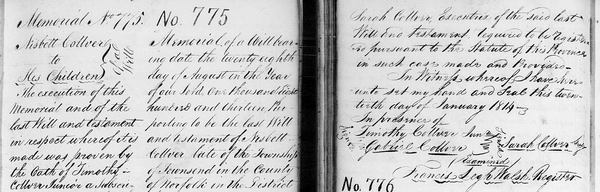 Memorial No 775.
Nisbett Collver
to
His Children
Gal
Will
The execution of this
Memorial and of the
last Will and testament
in respect whereof it is
made was proven by
the Oath of Timothy
Collver Junior a subscri
No. 775
Memorial of a Will bear
ing date the twenty eighth
day of August in the Year
of our Lord One thousand Eight
hundred and thirteen Pur
porting to be the last Will
and testament of Nisbett
Collver late of the Township
of Townsend in the County
of Norfolk in the District
Sarah Collver Executrix of the said last
Will and testament required to be Regis
pursuant to the Statute of this Province
in such case made and Provided
In Witness whereof I have here
unto set my hand and Seal this twen
tieth day of January 1814
In presence of
Timothy Collver Junr
Gabriel Collver
Sarah Collver
Examined
Francis Leigh Walsh Register
No. 776